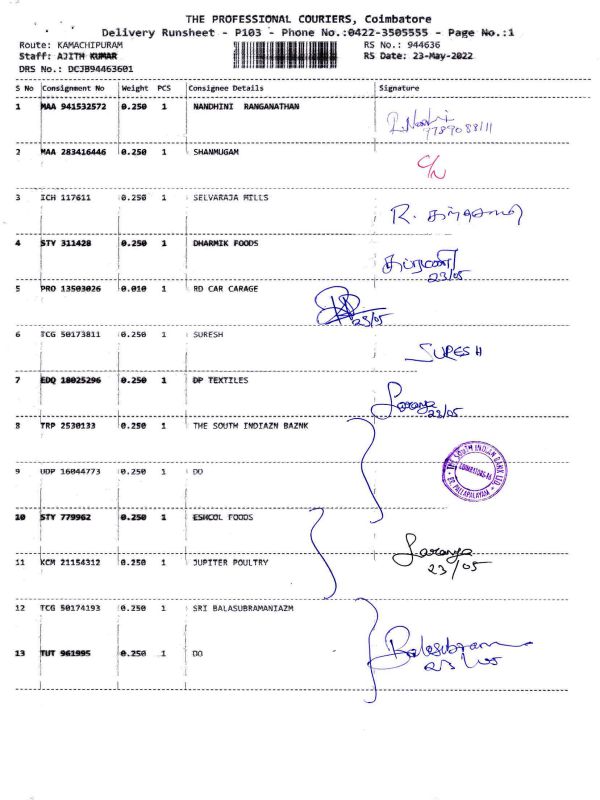 THE PROFESSIONAL COURIERS, Coimbatore
Delivery Runsheet - P103 - Phone No.:0422-3505555 - Page No.:1
Route: KAMACHIPURAM RS No.: 944636
Staff: AJITH KUMAR RS Date: 23-May-2022
DRS No.: DCJB94463601
S No Consignment No Weight PCS Consignee Details Signature
1 MAA 941532572 0.250 1 NANDHINI RANGANATHAN
9789088111
2 MAA 283416446 0.250 1 SHANMUGAM C/N
3 ICH 117611 0.250 1 SELVARAJA MILLS R.
4 STY 311428 0.250 1 DHARMIK FOODS
23/05
5 PRO 13503026 0.010 1 RD CAR CARAGE
23/05
6 TCG 50173811 0.250 1 SURESH SURESH
7 EDQ 18025296 0.250 1 DP TEXTILES Saranya
23/05
8 TRP 2530133 0.250 1 THE SOUTH INDIAZN BAZNK
THE SOUTH INDIAN BANK LTD.
BR. PALLAPALAYAM
9 UDP 16044773 0.250 1 DO
10 STY 779962 0.250 1 ESHCOL FOODS
Saranya
23/05
11 KCM 21154312 0.250 1 JUPITER POULTRY
12 TCG 50174193 0.250 1 SRI BALASUBRAMANIAZM
Balasubram
23/05
13 TUT 961995 0.250 1 DO